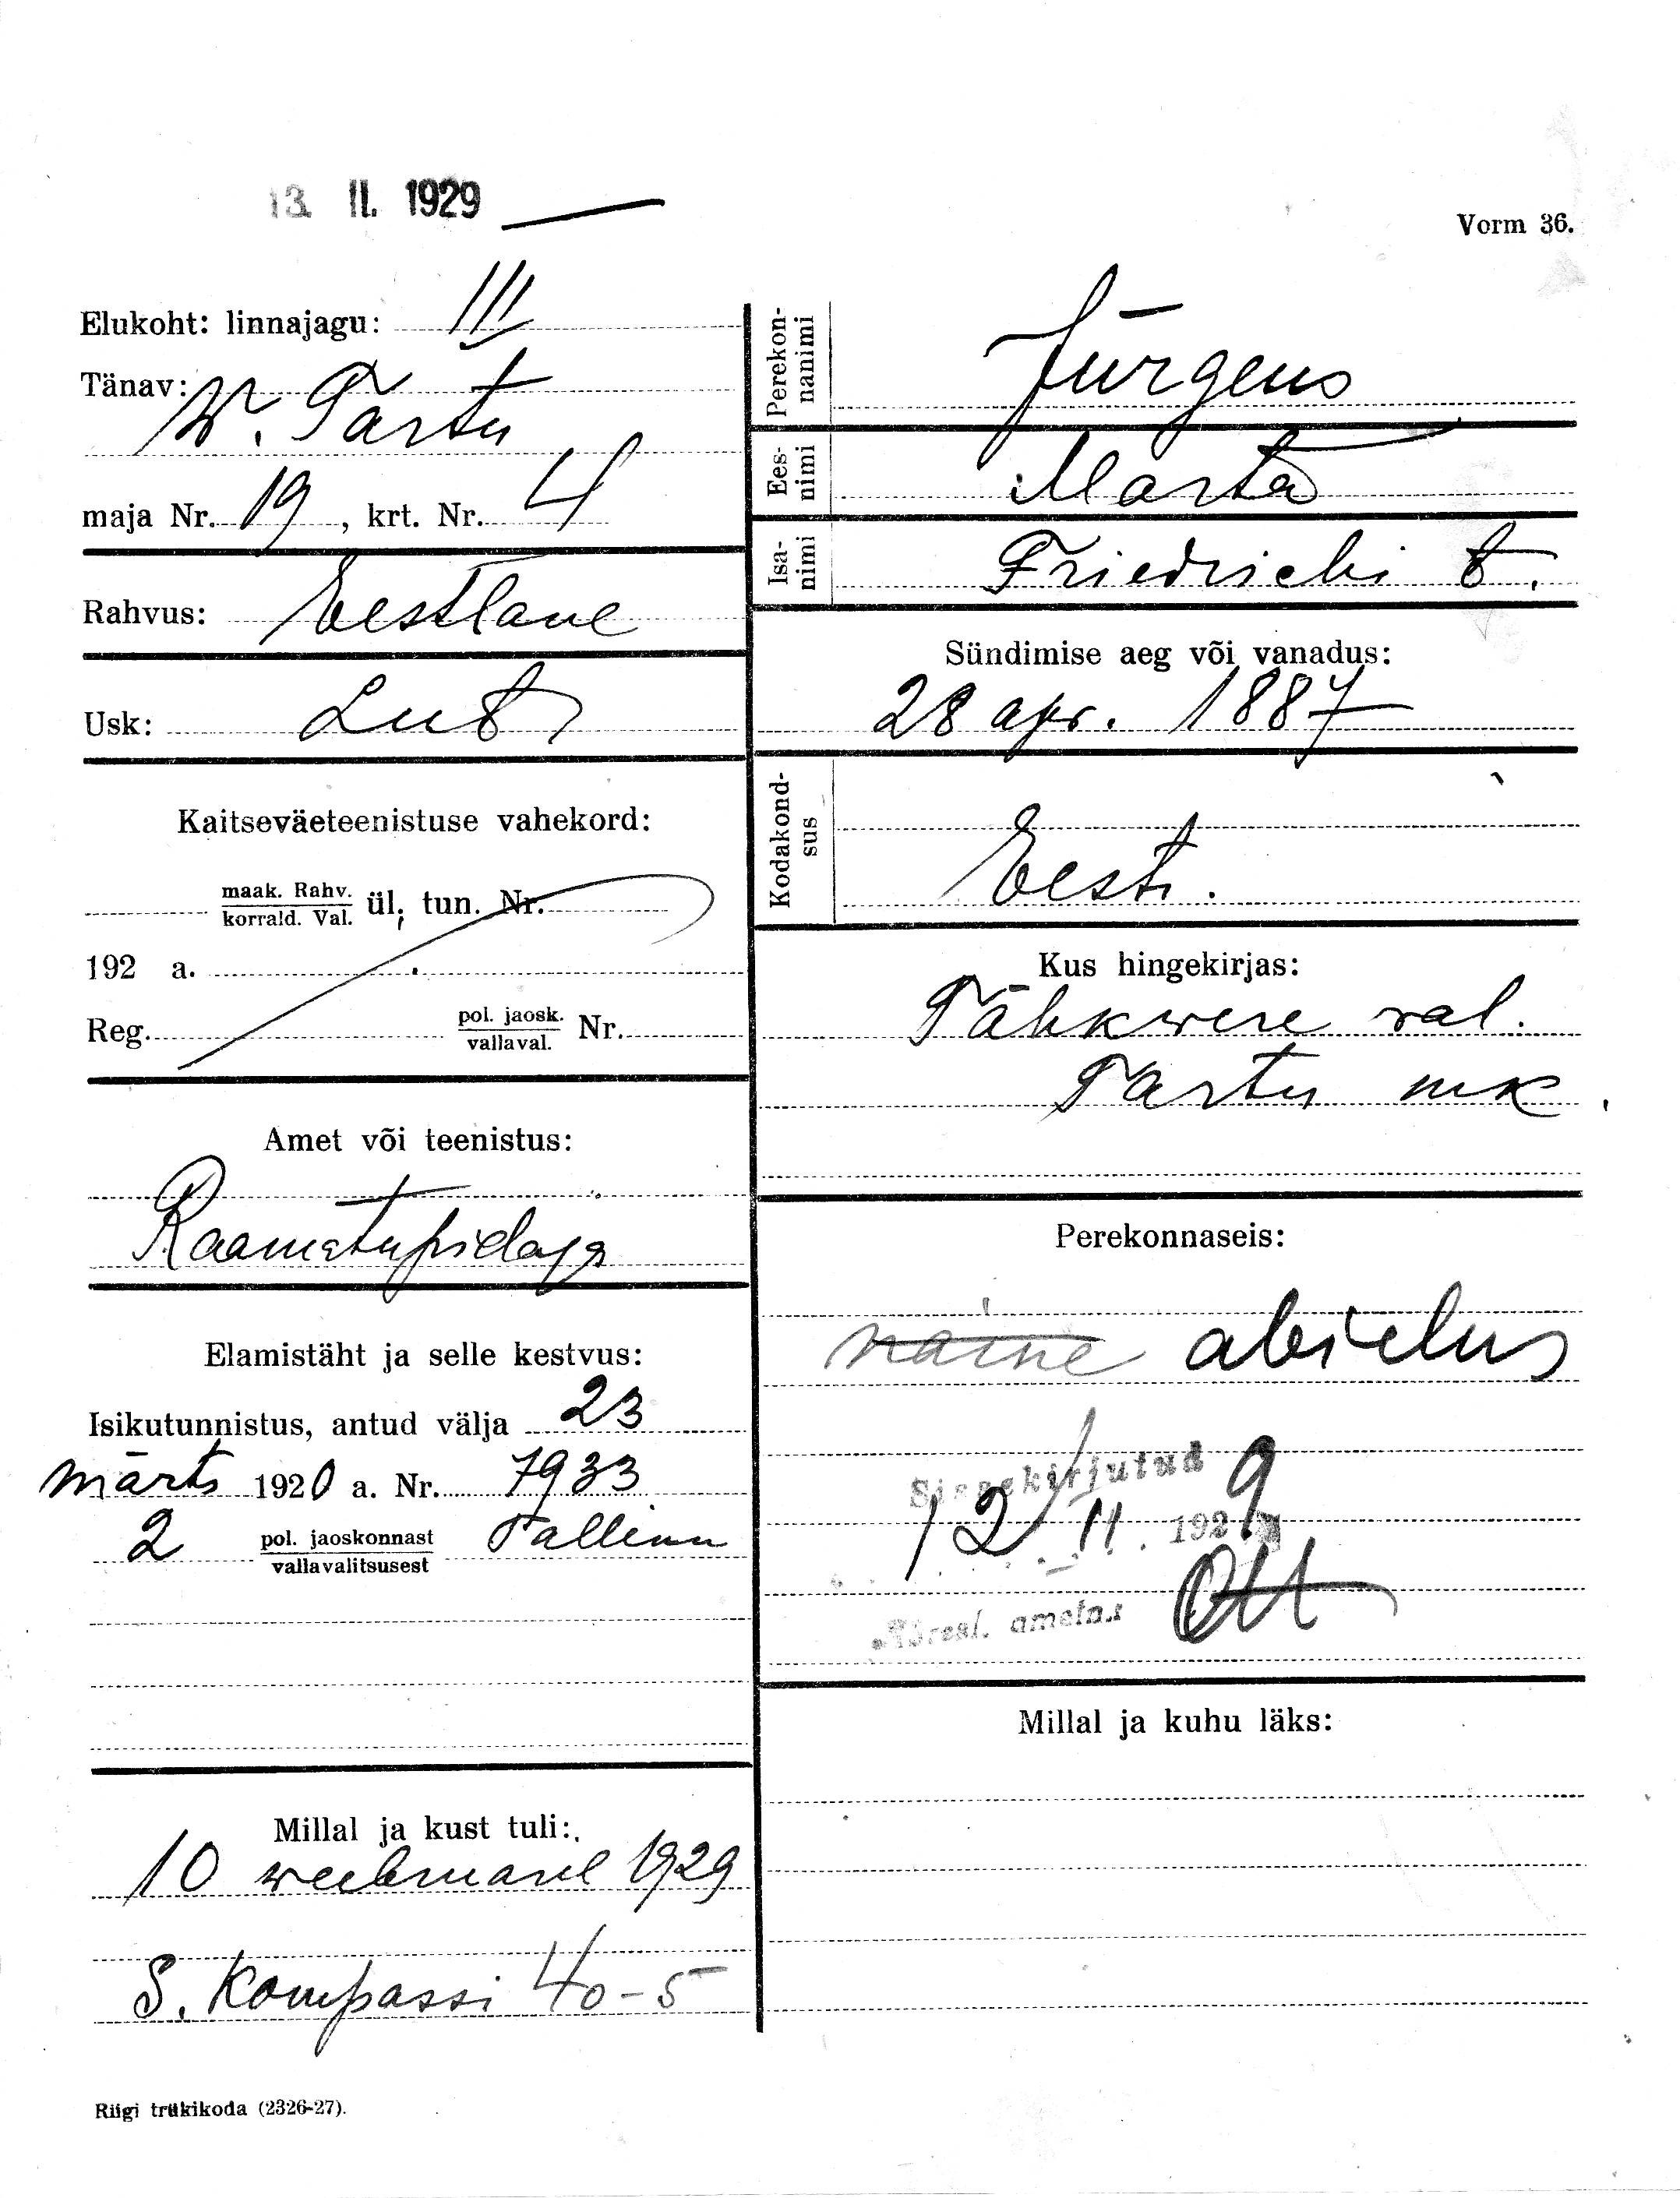 13. II. 1929
Vorm 36.
Elukoht: linnajagu: III
Tänav: W. Tartu
maja Nr. 19, krt. Nr. 4
Rahvus: Eestlane
Usk: Lut
Kaitseväeteenistuse vahekord:
maak. Rahv.
korrald. Val. ül. tun. Nr.
192 a.
Reg. pol. jaosk.
vallaval. Nr.
Amet või teenistus:
Raamatupidaja
Elamistäht ja selle kestvus:
Isikutunnistus, antud välja 23
märts 1920 a. Nr. 7933
2 pol. jaoskonnast Tallinn
vallavalitsusest
Millal ja kust tuli:
10 weebruaril 1929
S. Kompassi 40-5
Riigi trükikoda (2326-27).
Perekon-
nanimi
Jürgens
Ees-
nimi
Marta
Isa-
nimi
Friedrichi t.
Sündimise aeg või vanadus:
28 apr. 1887
Kodakond-
sus
Eesti.
Kus hingekirjas:
Tähkwere val.
Tartu mk.
Perekonnaseis:
naine abielus
Sissekirjutud
12 II 1929
ametn.:
Ott
Millal ja kuhu läks: